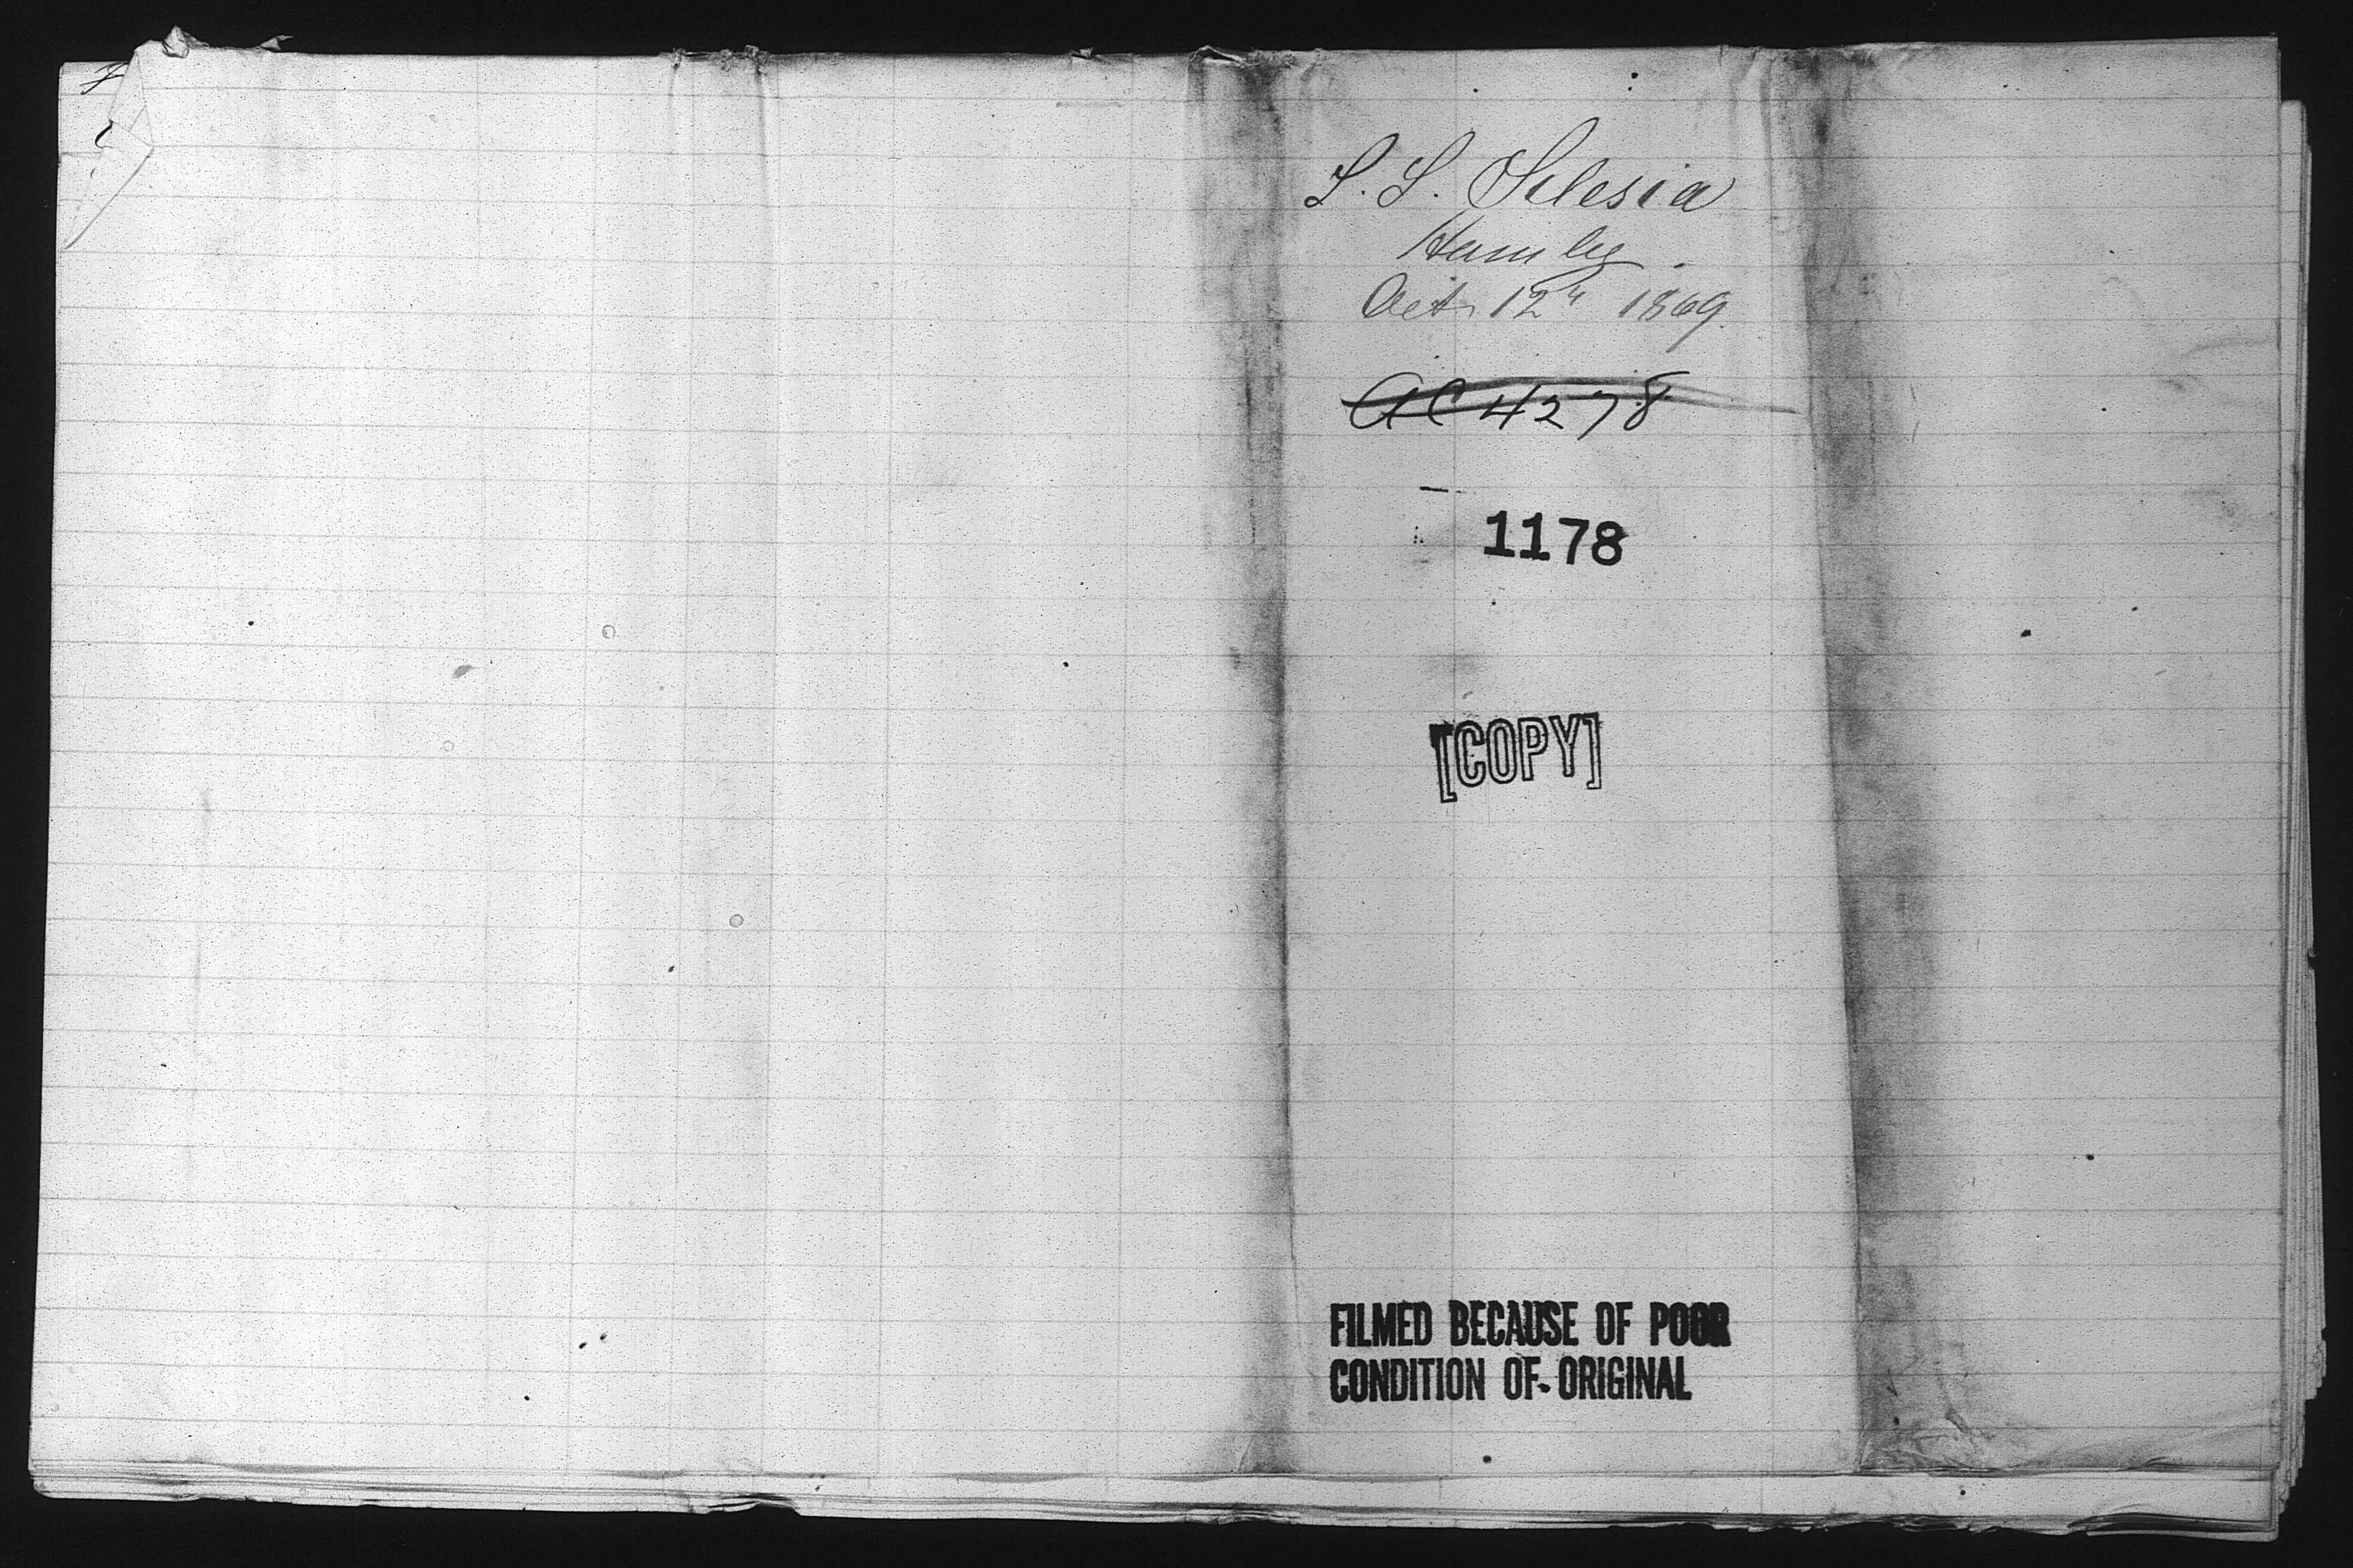 S. S. Silesia
Hambg.
Oct. 12" 1869.
AC 4278
1178
[COPY]
FILMED BECAUSE OF POOR
CONDITION OF ORIGINAL